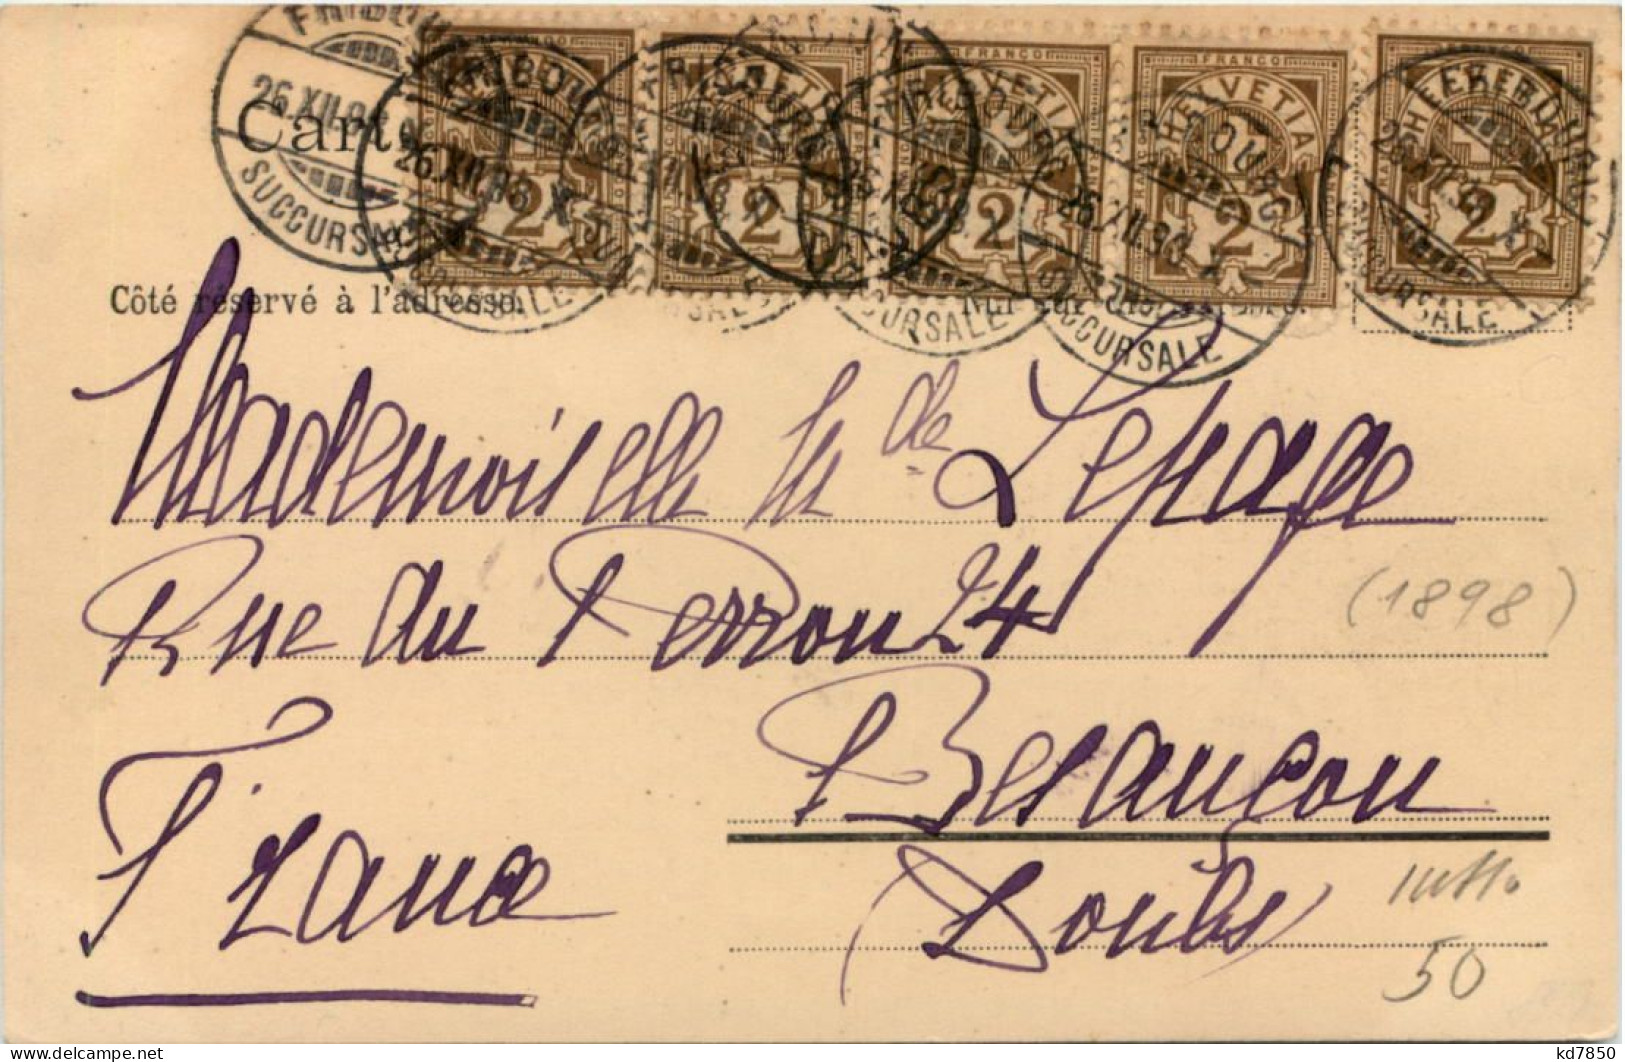 FRIBOURG
26.XII.98
SUCCURSALE
FRANCO FRANCO
HELVETIA HELVETIA
2 2 2 2 2
Côté réservé à l'adresse.
Mademoiselle M de Lepage
Rue du Perron 24
(1898)
Besançon
France
Doubs
50
kd7850